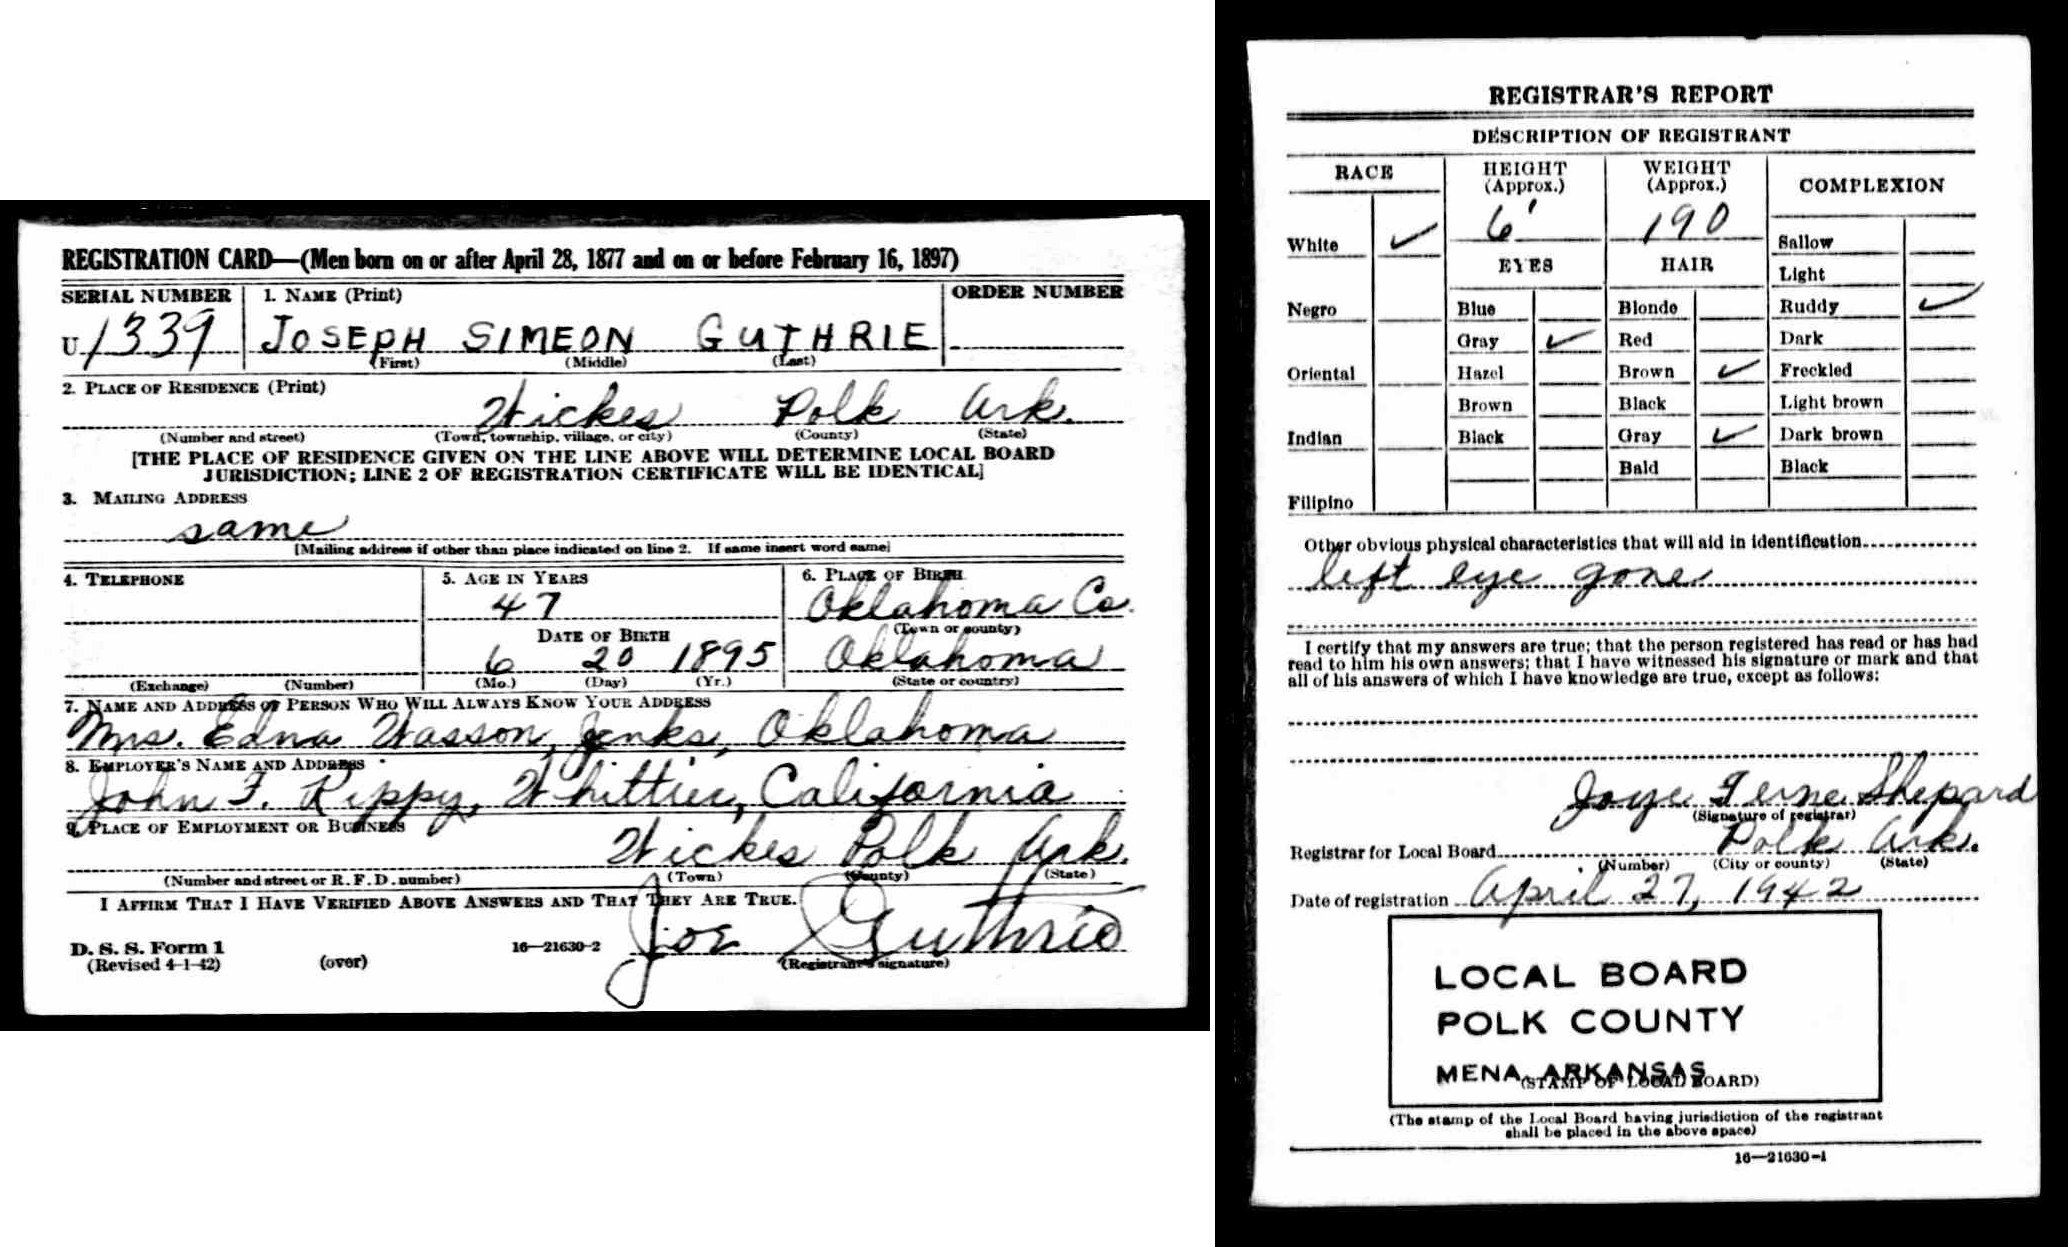 REGISTRATION CARD—(Men born on or after April 28, 1877 and on or before February 16, 1897)
SERIAL NUMBER
1. NAME (Print)
ORDER NUMBER
U 1339
JOSEPH SIMEON GUTHRIE
(First) (Middle) (Last)
2. PLACE OF RESIDENCE (Print)
Wickes Polk Ark.
(Number and street) (Town, township, village, or city) (County) (State)
[THE PLACE OF RESIDENCE GIVEN ON THE LINE ABOVE WILL DETERMINE LOCAL BOARD
JURISDICTION; LINE 2 OF REGISTRATION CERTIFICATE WILL BE IDENTICAL]
3. MAILING ADDRESS
same
[Mailing address if other than place indicated on line 2. If same insert word same]
4. TELEPHONE
5. AGE IN YEARS
6. PLACE OF BIRTH
47
Oklahoma Co.
DATE OF BIRTH
(Town or county)
6 20 1895
Oklahoma
(Exchange) (Number) (Mo.) (Day) (Yr.) (State or country)
7. NAME AND ADDRESS OF PERSON WHO WILL ALWAYS KNOW YOUR ADDRESS
Mrs. Edna Wasson, Jenks, Oklahoma
8. EMPLOYER'S NAME AND ADDRESS
John F. Rippy, Whittier, California
9. PLACE OF EMPLOYMENT OR BUSINESS
Wickes Polk Ark.
(Number and street or R. F. D. number) (Town) (County) (State)
I AFFIRM THAT I HAVE VERIFIED ABOVE ANSWERS AND THAT THEY ARE TRUE.
Joe Guthrie
D. S. S. Form 1
(Revised 4-1-42) (over) 16—21630-2 (Registrant's signature)
REGISTRAR'S REPORT
DESCRIPTION OF REGISTRANT
RACE
HEIGHT
(Approx.)
WEIGHT
(Approx.)
COMPLEXION
6' 190
White ✓
Sallow
EYES
HAIR
Light
Negro
Blue
Blonde
Ruddy ✓
Gray ✓
Red
Dark
Oriental
Hazel
Brown ✓
Freckled
Brown
Black
Light brown
Indian
Black
Gray ✓
Dark brown
Bald
Black
Filipino
Other obvious physical characteristics that will aid in identification
left eye gone
I certify that my answers are true; that the person registered has read or has had
read to him his own answers; that I have witnessed his signature or mark and that
all of his answers of which I have knowledge are true, except as follows:
Joye Ferne Shepard
(Signature of registrar)
Registrar for Local Board Polk Ark.
(Number) (City or county) (State)
Date of registration April 27, 1942
LOCAL BOARD
POLK COUNTY
MENA, ARKANSAS
(STAMP OF LOCAL BOARD)
(The stamp of the Local Board having jurisdiction of the registrant
shall be placed in the above space)
16—21630-1